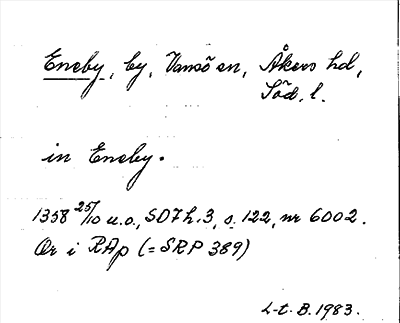 Eneby, by, Vansö sn, Åkers hd,
Söd. l.
in Eneby.
1358 25/10 u.o., SD7h.3, s. 122, nr 6002.
Or i RAp (= SRP 389)
L-t. B. 1983.